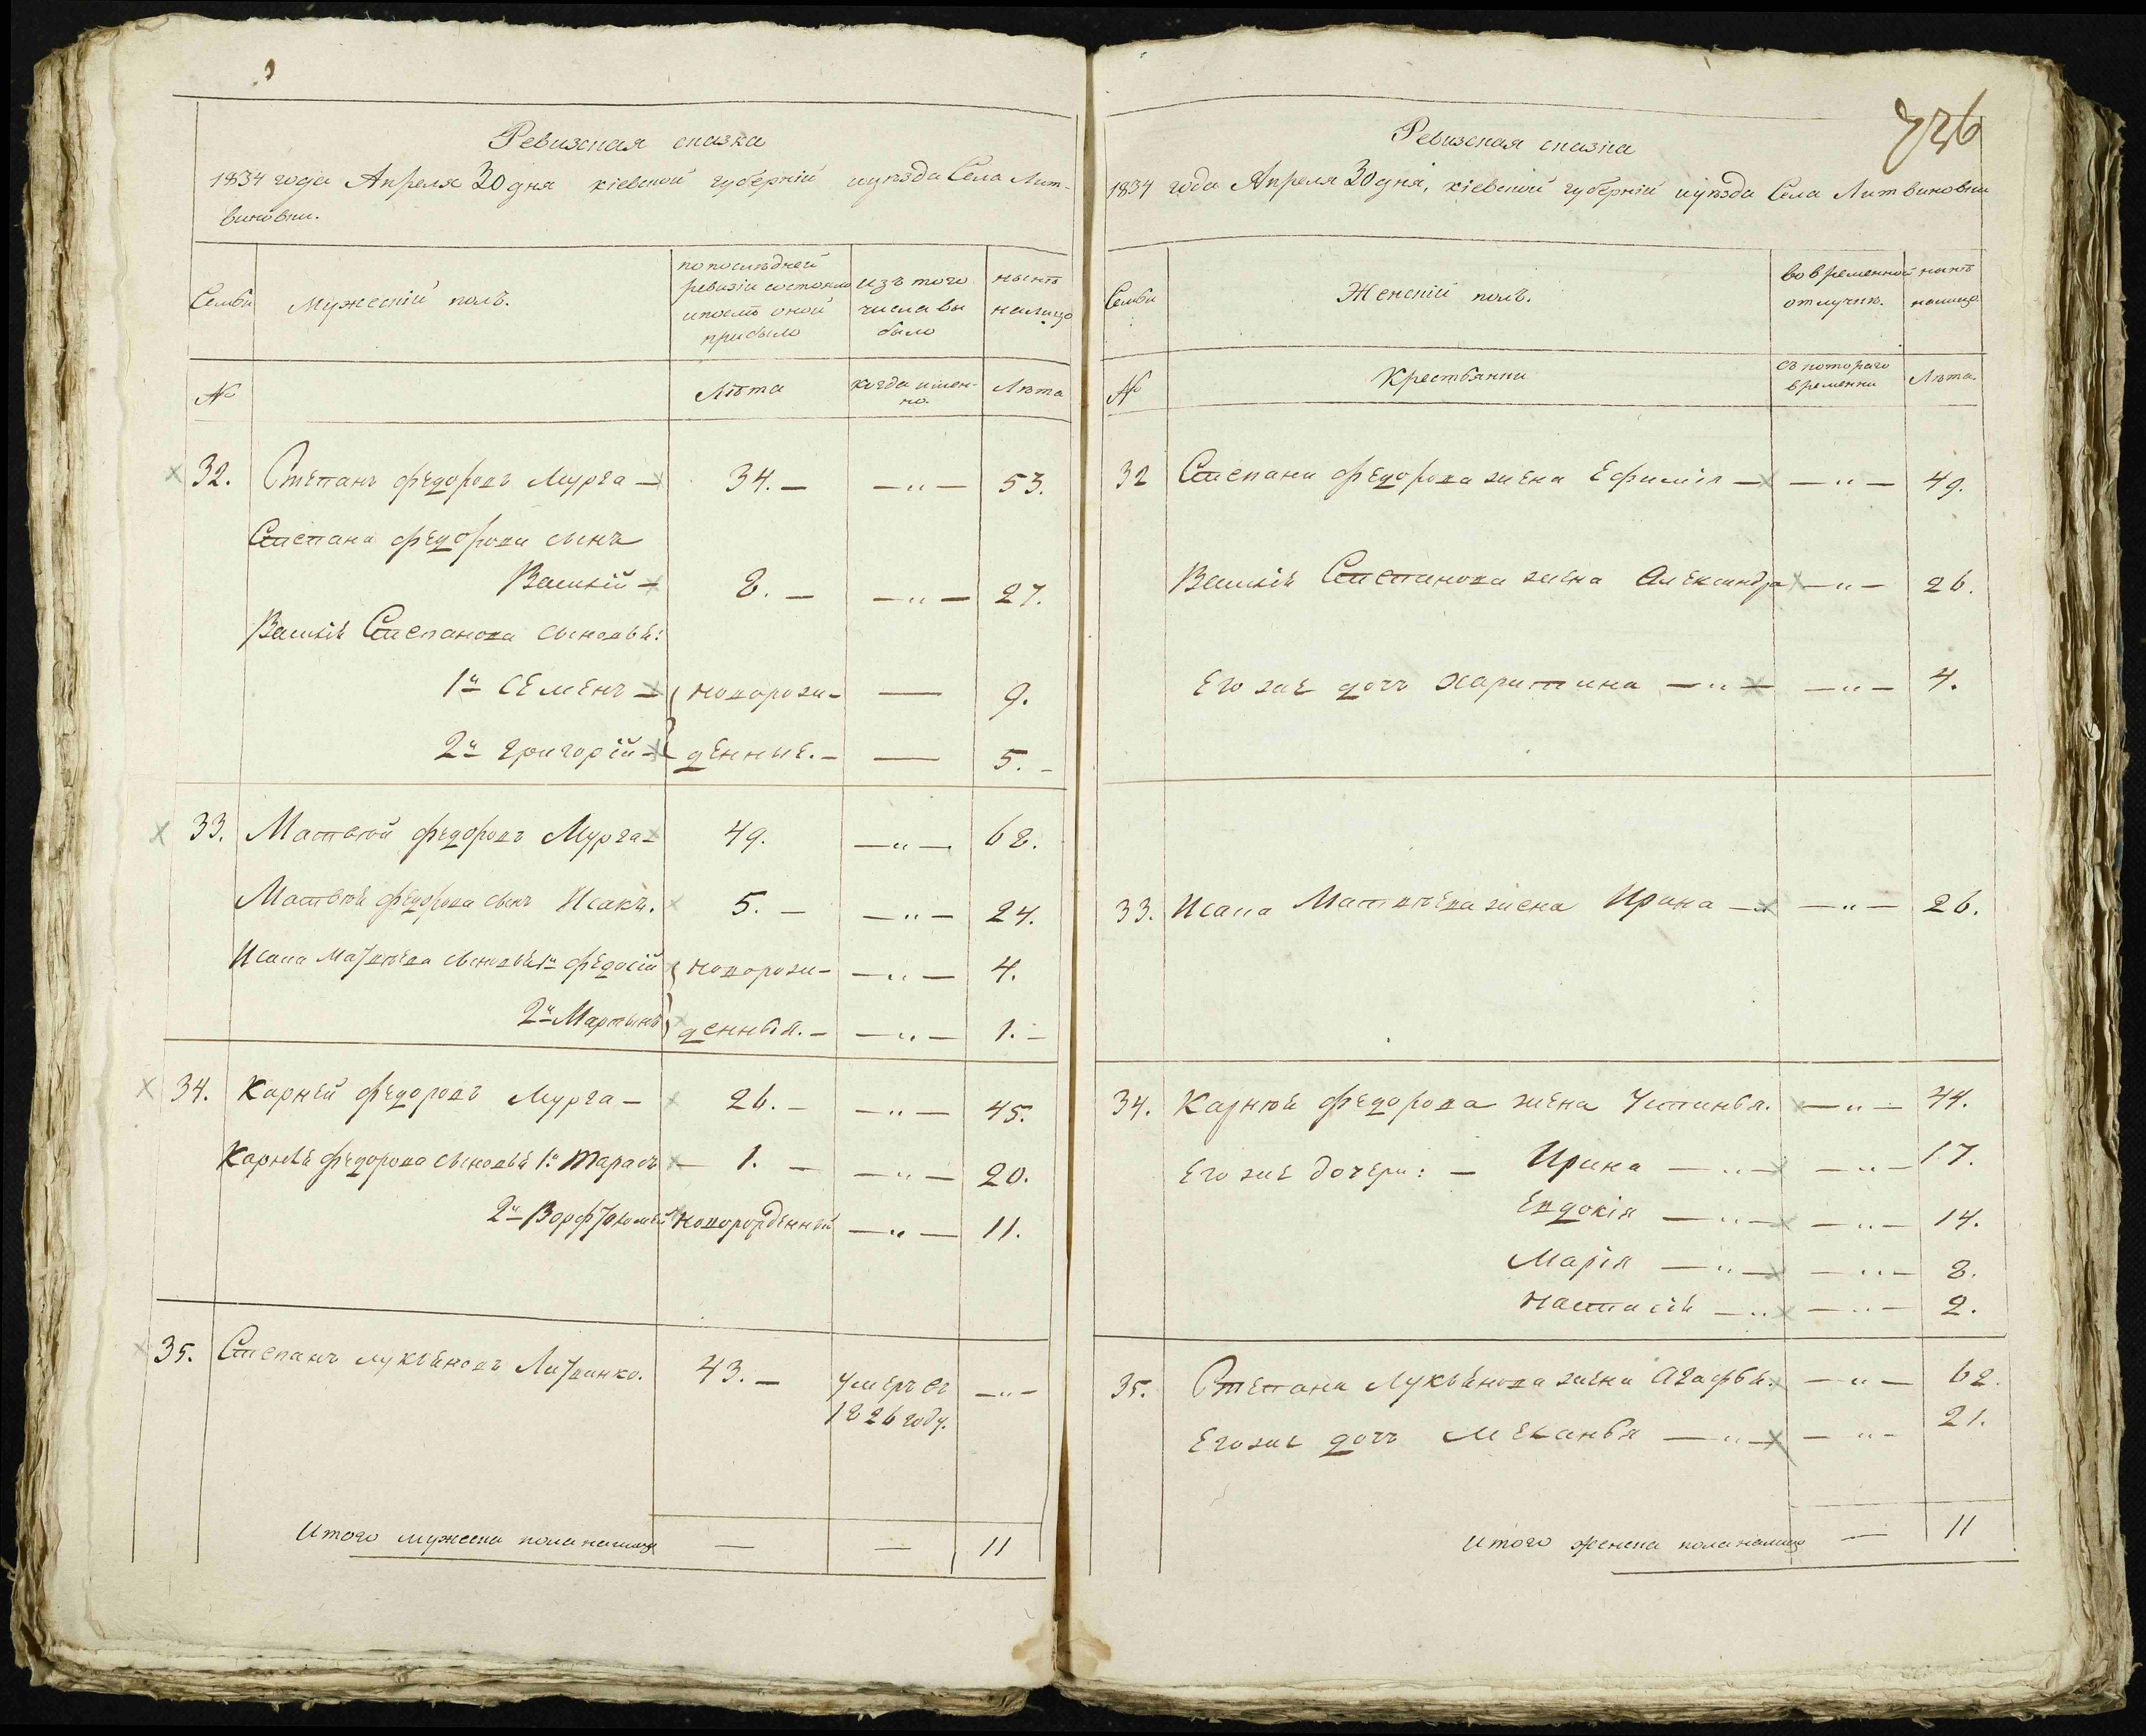 Ревизская сказка
1834 года Апреля 30 дня кіевской губерніи иуѣзда Села Лит-
виновки.
Семьи
Мужескій полъ.
попослѣдней
ревизіи состояло
ипослѣ оной
прибыло
изъ того
числа вы
было
нынѣ
налицо
№
Лѣта
когда имен-
но.
Лѣта
32. Степанъ Федоровъ Мурга — 34. — — „ — 53.
Степана Федорова сынъ
Василій — 8. — — „ — 27.
Василія Степанова сыновья:
1й Семенъ — новорож- — 9.
2й Григорій — денные. — — 5. —
33. Матвѣй Федоровъ Мурга — 49. — „ — 68.
Матвѣя Федорова сынъ Исакъ. 5. — — „ — 24.
Исака Матвѣева сыновья 1й Федосій новорож- — „ — 4.
2й Мартынъ денныя. — — „ — 1. —
34. Карнѣй Федоровъ Мурга — 26. — — „ — 45.
Карнѣя Федорова сыновья 1й Тарасъ — 1. — — „ — 20.
2й Ворфтоломей новорожденный — „ — 11.
35. Степанъ Лукьяновъ Литвинко. 43. — умеръ въ — „ —
1826 году.
Итого мужеска пола налицо — — 11
726
Ревизская сказка
1834 года Апреля 30 дня, кіевской губерніи иуѣзда Села Литвиновки
Семьи
Женскій полъ.
вовременной
отлучкѣ.
нынѣ
налицо
№
Крестьянки
съ котораго
времянни
Лѣта.
32 Степана Федорова жена Ефимія — — „ — 49.
Василія Степанова жена Александра — „ — 26.
Его же дочь Харитина — „ — — „ — 4.
33. Исака Матвѣева жена Ирина — — „ — 26.
34. Карнѣя Федорова жена Устинья. — „ — 44.
Его же дочери: — Ирина — „ — — „ — 17.
Евдокія — „ — — „ — 14.
Марія — „ — — „ — 8.
Настасія — „ — „ — 2.
35. Степана Лукьянова жена Агафья. — „ — 62.
Его же дочь Меланья — „ — — „ — 21.
Итого женска пола налицо — 11